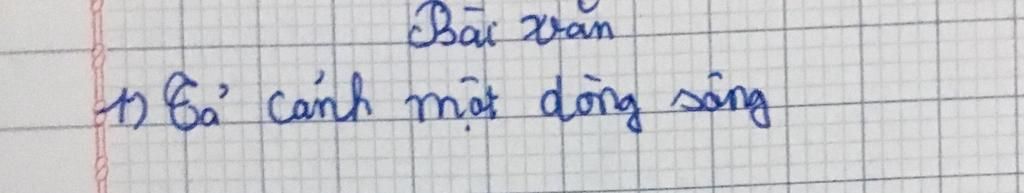 Bài văn
1) Tả cảnh một dòng sông